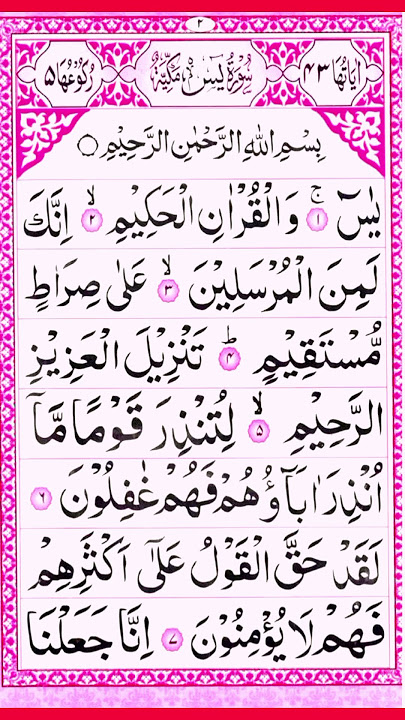 ۲
اٰیَاتُهَا ۴۳ سُوْرَةُ یٰسٓ مَكِّیَّةٌ رُكُوْعُهَا ۵
بِسْمِ اللّٰهِ الرَّحْمٰنِ الرَّحِیْمِ ○
یٰسٓ ۚ ۱ وَ الْقُرْاٰنِ الْحَكِیْمِ ۙ ۲ اِنَّكَ
لَمِنَ الْمُرْسَلِیْنَ ۙ ۳ عَلٰى صِرَاطٍ
مُّسْتَقِیْمٍ ؕ ۴ تَنْزِیْلَ الْعَزِیْزِ
الرَّحِیْمِ ۙ ۵ لِتُنْذِرَ قَوْمًا مَّاۤ
اُنْذِرَ اٰبَآؤُهُمْ فَهُمْ غٰفِلُوْنَ ۶
لَقَدْ حَقَّ الْقَوْلُ عَلٰۤى اَكْثَرِهِمْ
فَهُمْ لَا یُؤْمِنُوْنَ ۷ اِنَّا جَعَلْنَا